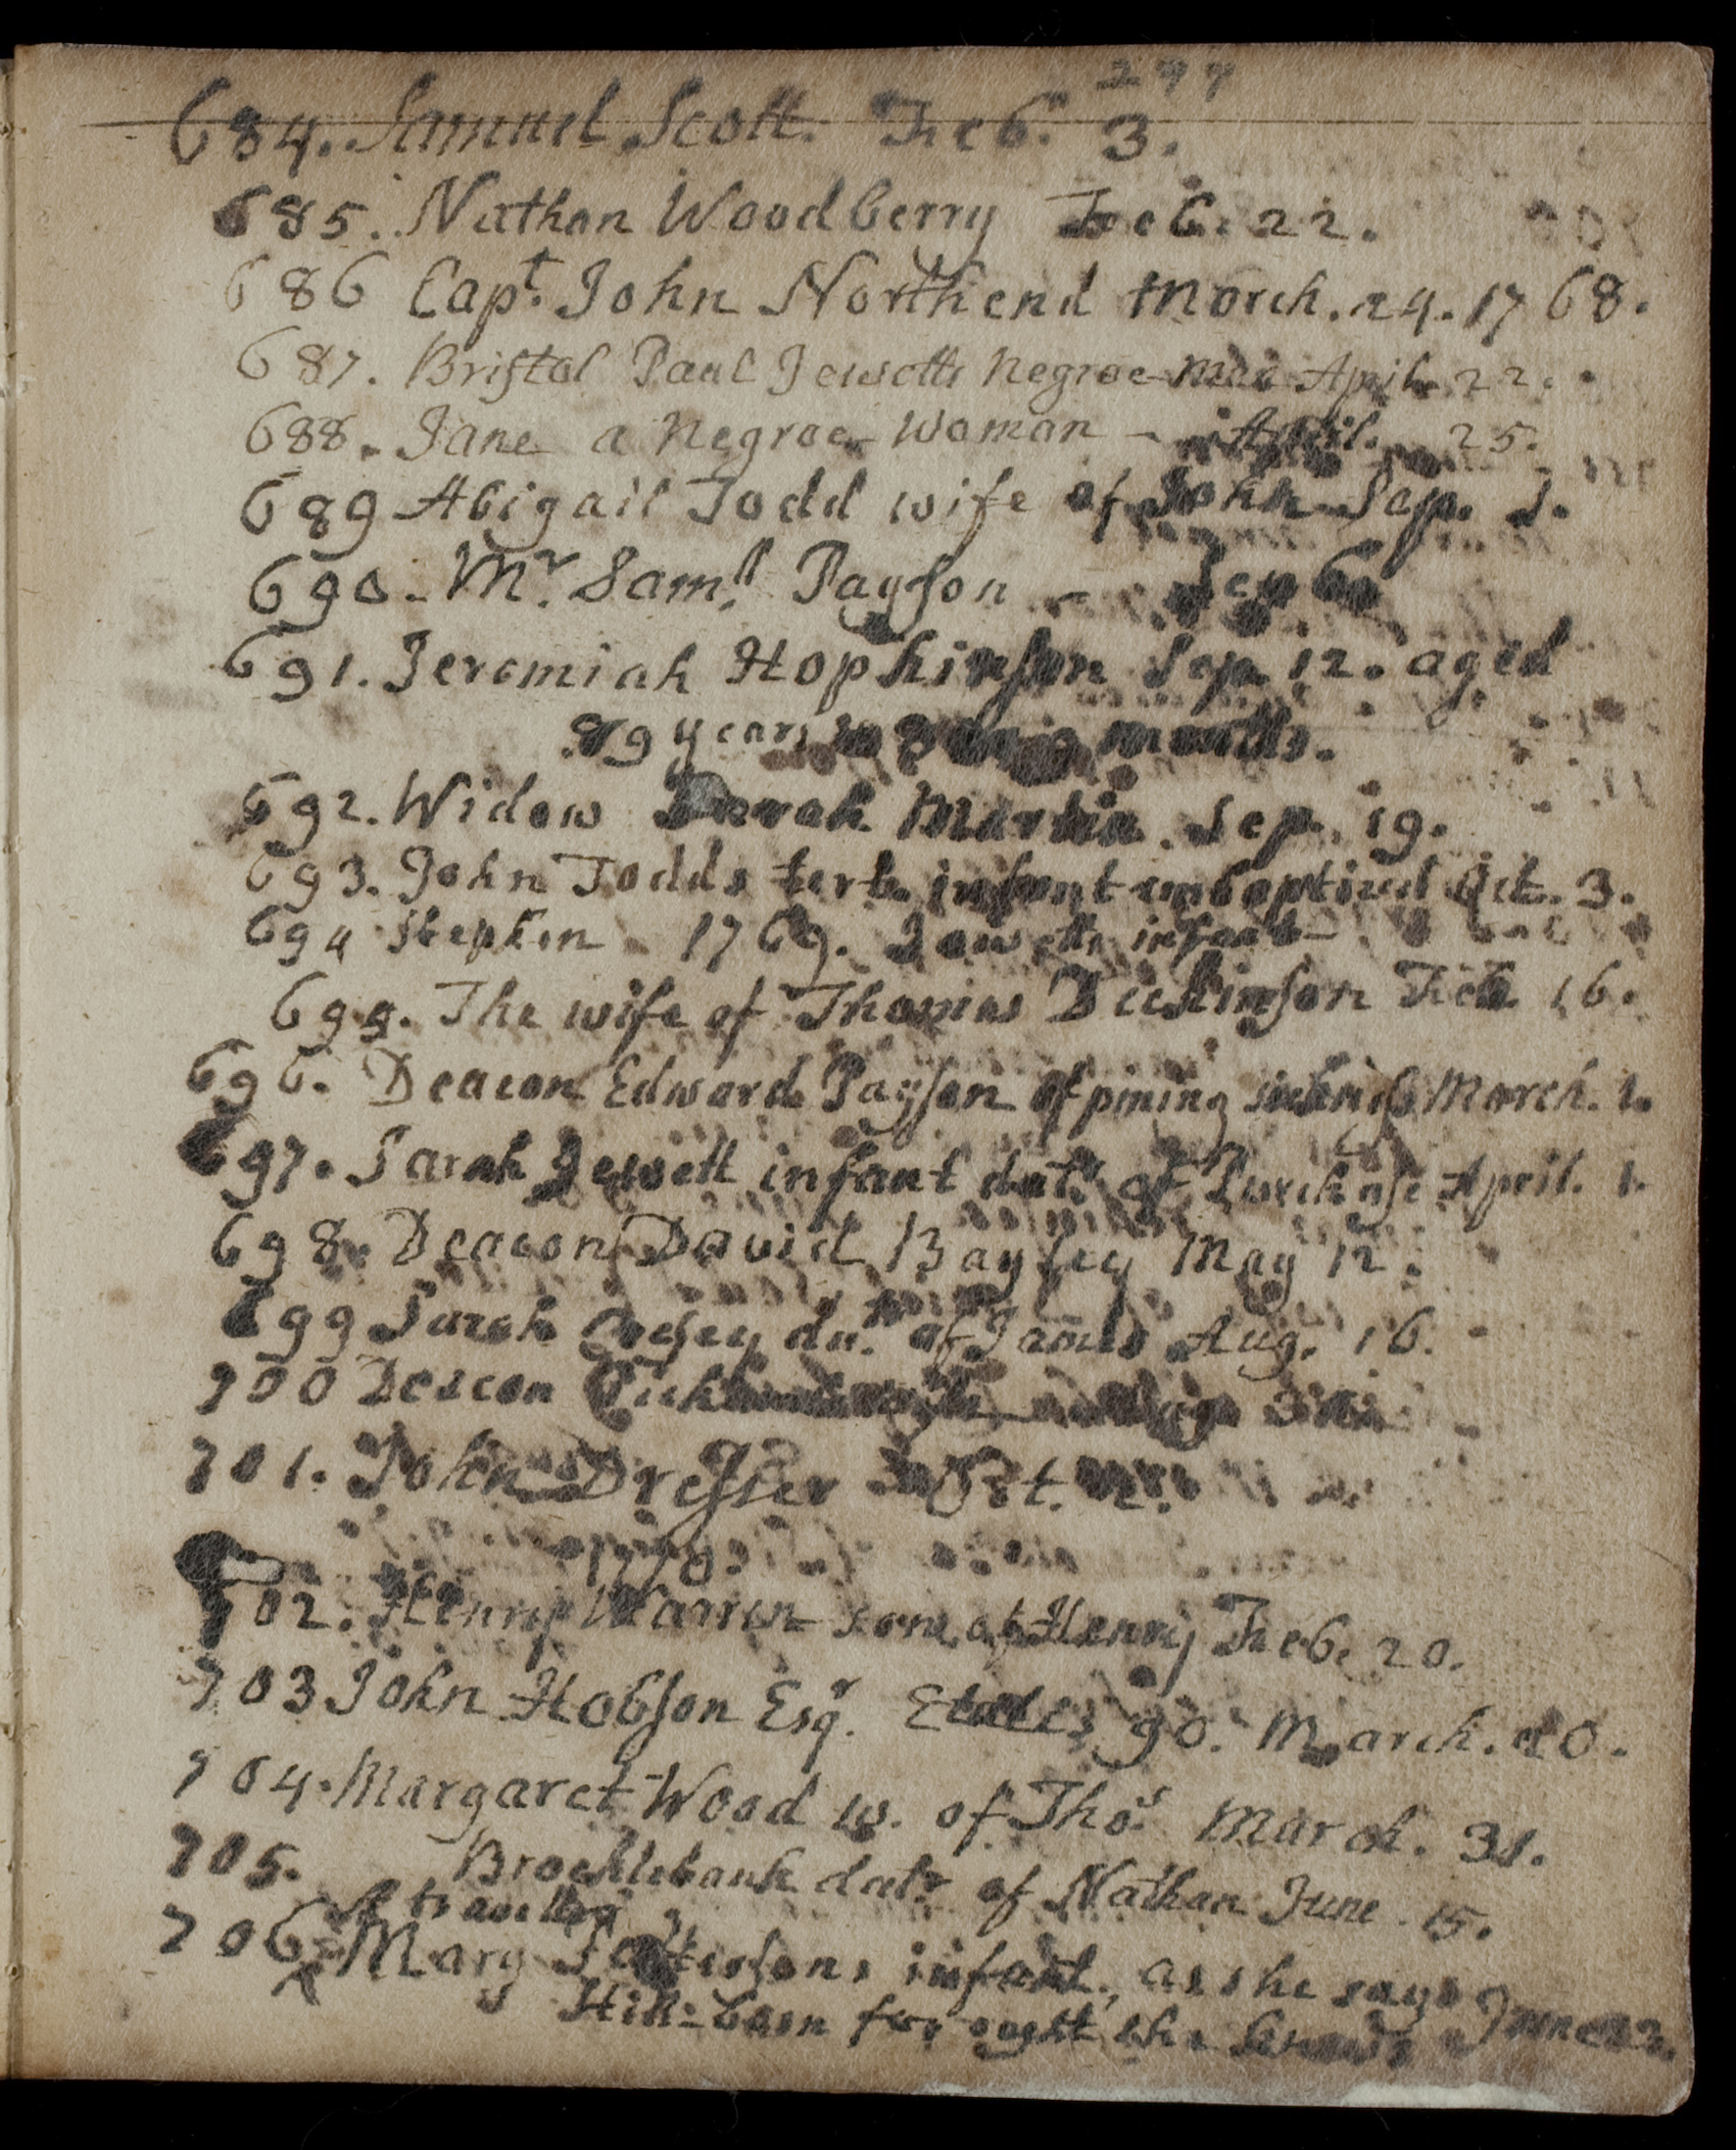 277
684. Samuel Scott. Feb. 3.
685. Nathan Woodberry Feb. 22.
686 Capt. John Northend March. 24. 1768.
687. Bristol Paul Jewetts Negroe Man April 22.
688. Jane a Negroe Woman - April. 25.
689 Abigail Todd wife of John Sep. 1.
690. Mr. Samll. Payson - Sep 6
691. Jeremiah Hopkinson Sep. 12. aged
89 years months.
692. Widow Sarah Martin. Sep. 19.
693. John Todds infant unbaptized Oct. 3.
694 Stephen Jewetts infant
1769.
695. The wife of Thomas Dickinson Feb. 16.
696. Deacon Edward Payson of pining March. 1.
697. Sarah Jewett infant datr. of Purchase April. 1.
698. Deacon David Bayley May 12.
699 Sarah dar. of James Aug. 16.
700 Deacon
701. John Dresser Oct.
1770.
702. Henry Warren son of Henry Feb. 20.
703 John Hobson Esqr. 90. March.
704. Margaret Wood w. of Thos. March. 31.
705. Brocklebank datr. of Nathan June 15.
A travelling
706. Mary Pattersons infant, as she says June
Still-born for ought she knows